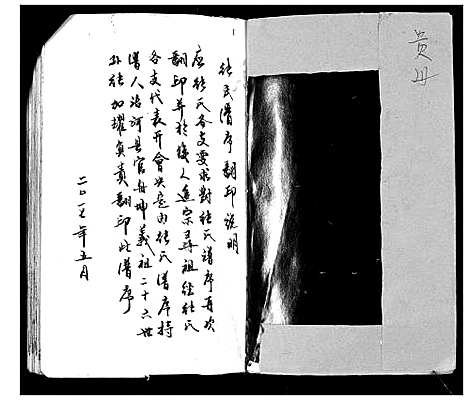 张氏谱序翻印说明
应张氏各支要求对张氏谱序再次
翻印并于后人追宗寻祖经张氏
各支代表开会决定由张氏谱序持
谱人沿河县官舟坤义祖二十六世
孙张加耀负责翻印此谱序
二〇一七年五月
贵州